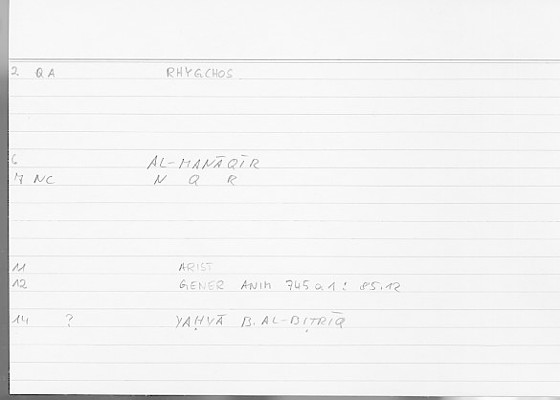 2 QA RHYGCHOS
6 AL-MANĀQĪR
7 NC N Q R
11 ARIST
12 GENER ANIM 745 a 1 : 85.12
14 ? YAḤYĀ B. AL-BIṬRĪQ